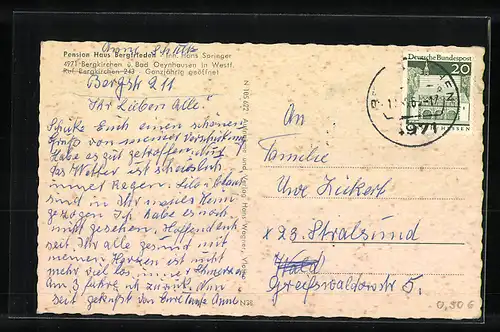 Anne Schatz
Pension Haus Bergfrieden · Inh. Hans Saringer
4971 Bergkirchen ü. Bad Oeynhausen in Westf.
Ruf Bergkirchen 243 · Ganzjährig geöffnet
Bergstr 211
Ihr Lieben Alle!
Schicke Euch einen schönen
Gruß von meiner Verschickung
Habe es gut getroffen,
das Wetter ist scheuslich
immer Regen.
sind in Ihr neues Heim
gezogen. Ich habe es noch
nicht gesehen. Hoffendlich
seit Ihr alle gesund mit
meinen ist nicht
mehr viel los, immer Schmerzen
Am 3 fahre ich zurück. Nun
seit geküsst von Eure Tante Anne
N 185 622
Hans Wagner, Vlotho
NEN
DEUTSCHE BUNDESPOST
20
HESSEN
4971
An
Familie
Uwe Zickert
x 23. Stralsund
Wald
Greifswalderstr 5.
0,50 G